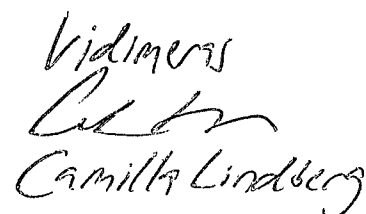 Vidimeras
Camilla Lindberg